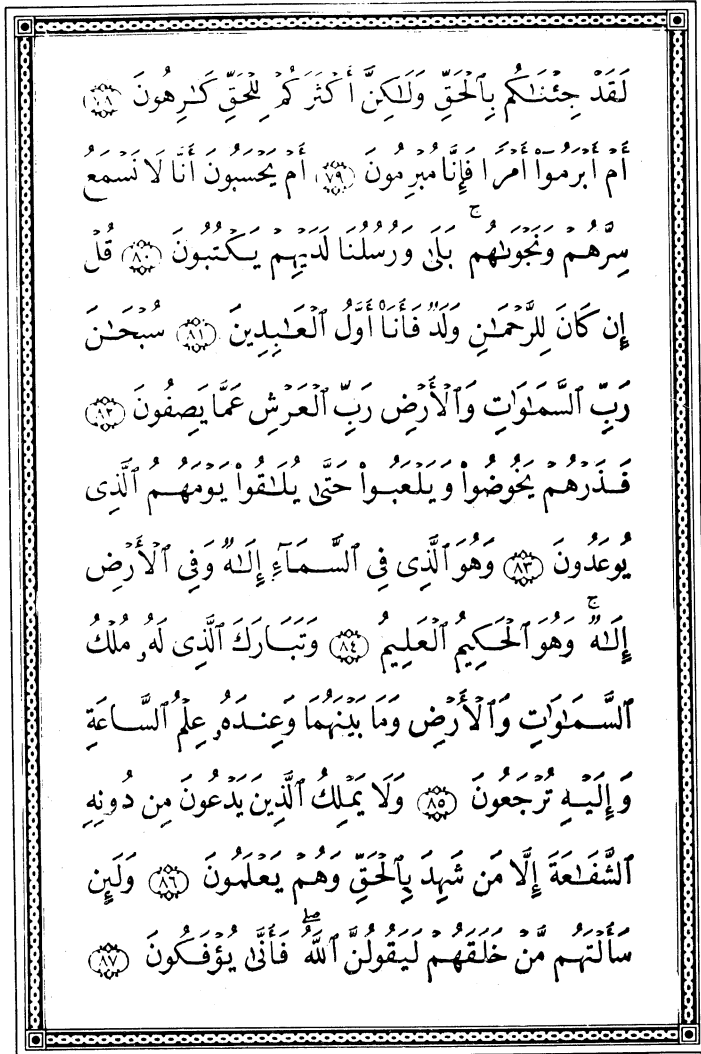 لَقَدْ جِئْنَٰكُم بِٱلْحَقِّ وَلَٰكِنَّ أَكْثَرَكُمْ لِلْحَقِّ كَٰرِهُونَ ۝٧٨
أَمْ أَبْرَمُوٓا۟ أَمْرًا فَإِنَّا مُبْرِمُونَ ۝٧٩ أَمْ يَحْسَبُونَ أَنَّا لَا نَسْمَعُ
سِرَّهُمْ وَنَجْوَىٰهُم ۚ بَلَىٰ وَرُسُلُنَا لَدَيْهِمْ يَكْتُبُونَ ۝٨٠ قُلْ
إِن كَانَ لِلرَّحْمَٰنِ وَلَدٌ فَأَنَا۠ أَوَّلُ ٱلْعَٰبِدِينَ ۝٨١ سُبْحَٰنَ
رَبِّ ٱلسَّمَٰوَٰتِ وَٱلْأَرْضِ رَبِّ ٱلْعَرْشِ عَمَّا يَصِفُونَ ۝٨٢
فَذَرْهُمْ يَخُوضُوا۟ وَيَلْعَبُوا۟ حَتَّىٰ يُلَٰقُوا۟ يَوْمَهُمُ ٱلَّذِى
يُوعَدُونَ ۝٨٣ وَهُوَ ٱلَّذِى فِى ٱلسَّمَآءِ إِلَٰهٌ وَفِى ٱلْأَرْضِ
إِلَٰهٌ ۚ وَهُوَ ٱلْحَكِيمُ ٱلْعَلِيمُ ۝٨٤ وَتَبَارَكَ ٱلَّذِى لَهُۥ مُلْكُ
ٱلسَّمَٰوَٰتِ وَٱلْأَرْضِ وَمَا بَيْنَهُمَا وَعِندَهُۥ عِلْمُ ٱلسَّاعَةِ
وَإِلَيْهِ تُرْجَعُونَ ۝٨٥ وَلَا يَمْلِكُ ٱلَّذِينَ يَدْعُونَ مِن دُونِهِ
ٱلشَّفَٰعَةَ إِلَّا مَن شَهِدَ بِٱلْحَقِّ وَهُمْ يَعْلَمُونَ ۝٨٦ وَلَئِن
سَأَلْتَهُم مَّنْ خَلَقَهُمْ لَيَقُولُنَّ ٱللَّهُ ۖ فَأَنَّىٰ يُؤْفَكُونَ ۝٨٧